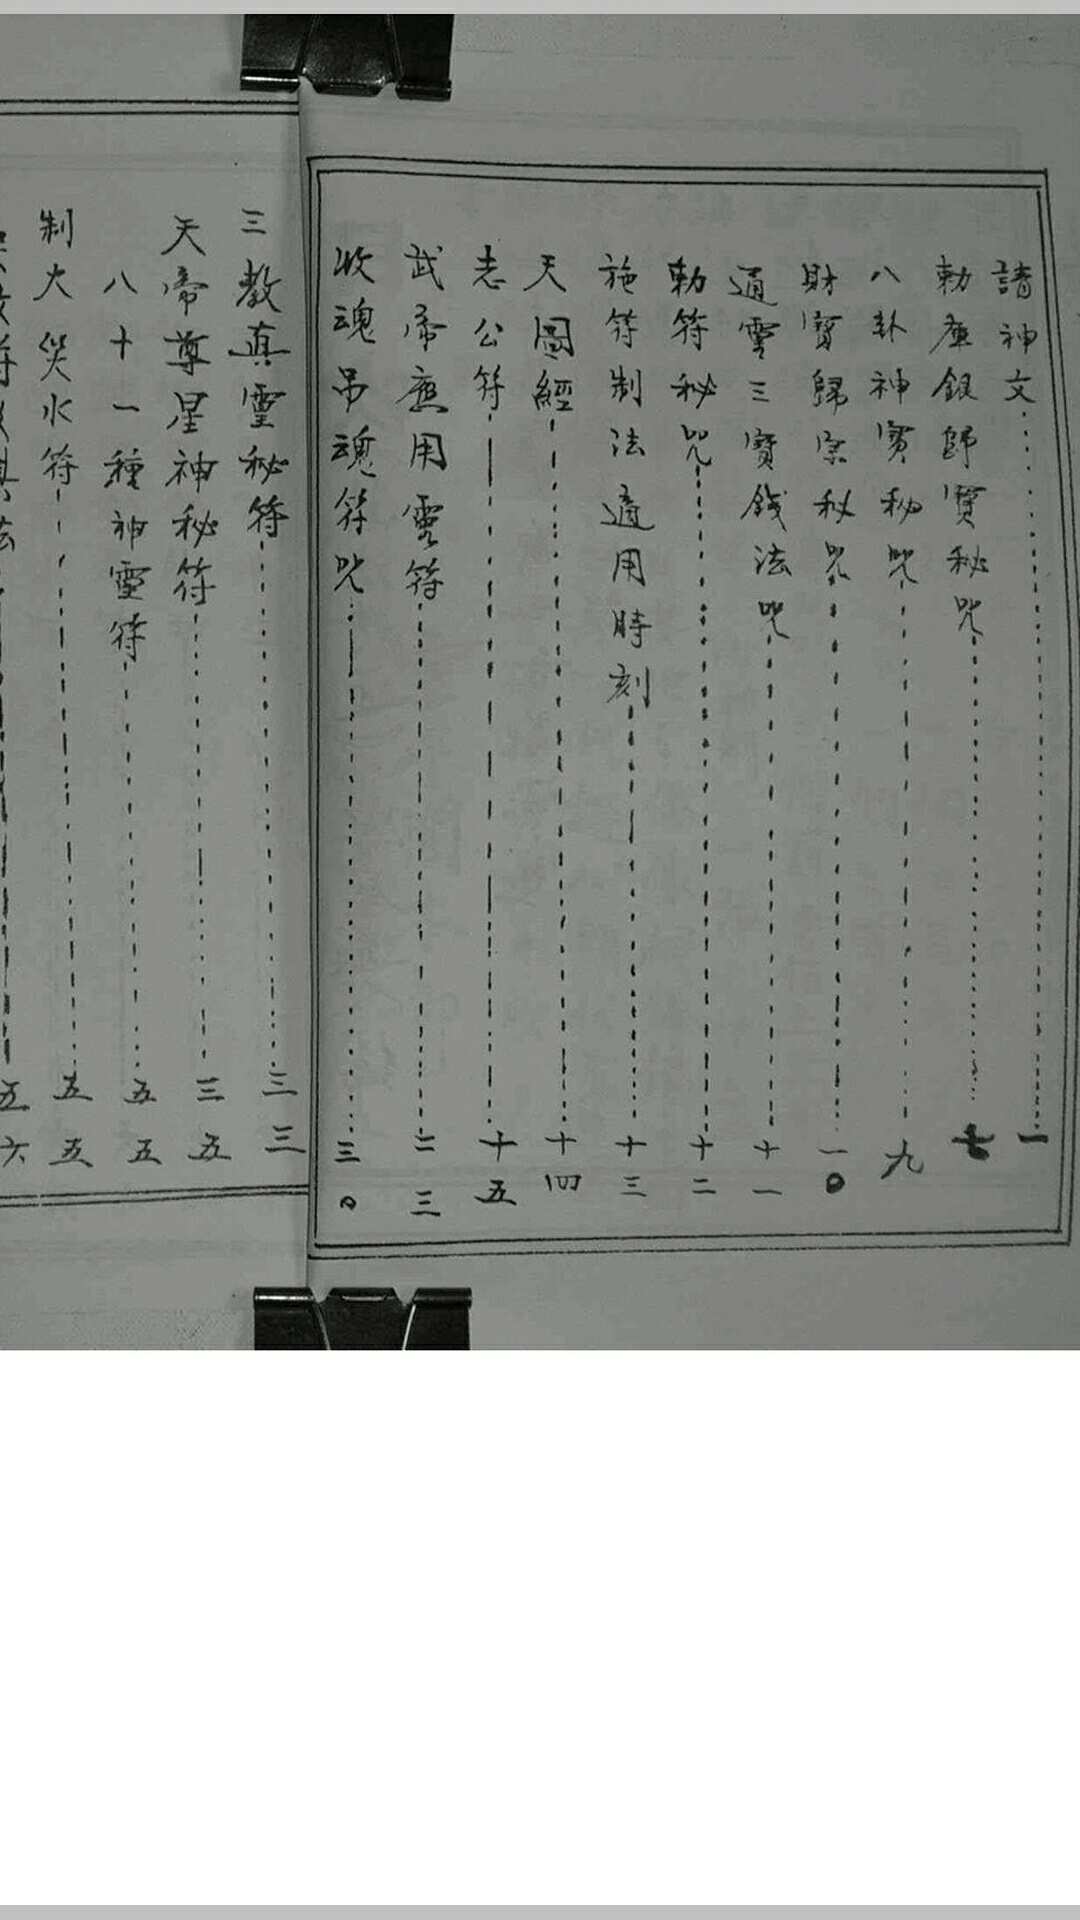 請神文 一
勅庫銀歸寶秘咒 七
八卦神寶秘咒 九
財寶歸宗秘咒 一〇
通靈三寶錢法咒 十一
勅符秘咒 十二
施符制法適用時刻 十三
天圖經 十四
志公符 十五
武帝應用靈符 二三
收魂吊魂符咒 三〇
三教真靈秘符 三三
天帝尊星神秘符 三五
八十一種神靈符 五五
制火災水符 五五
五六